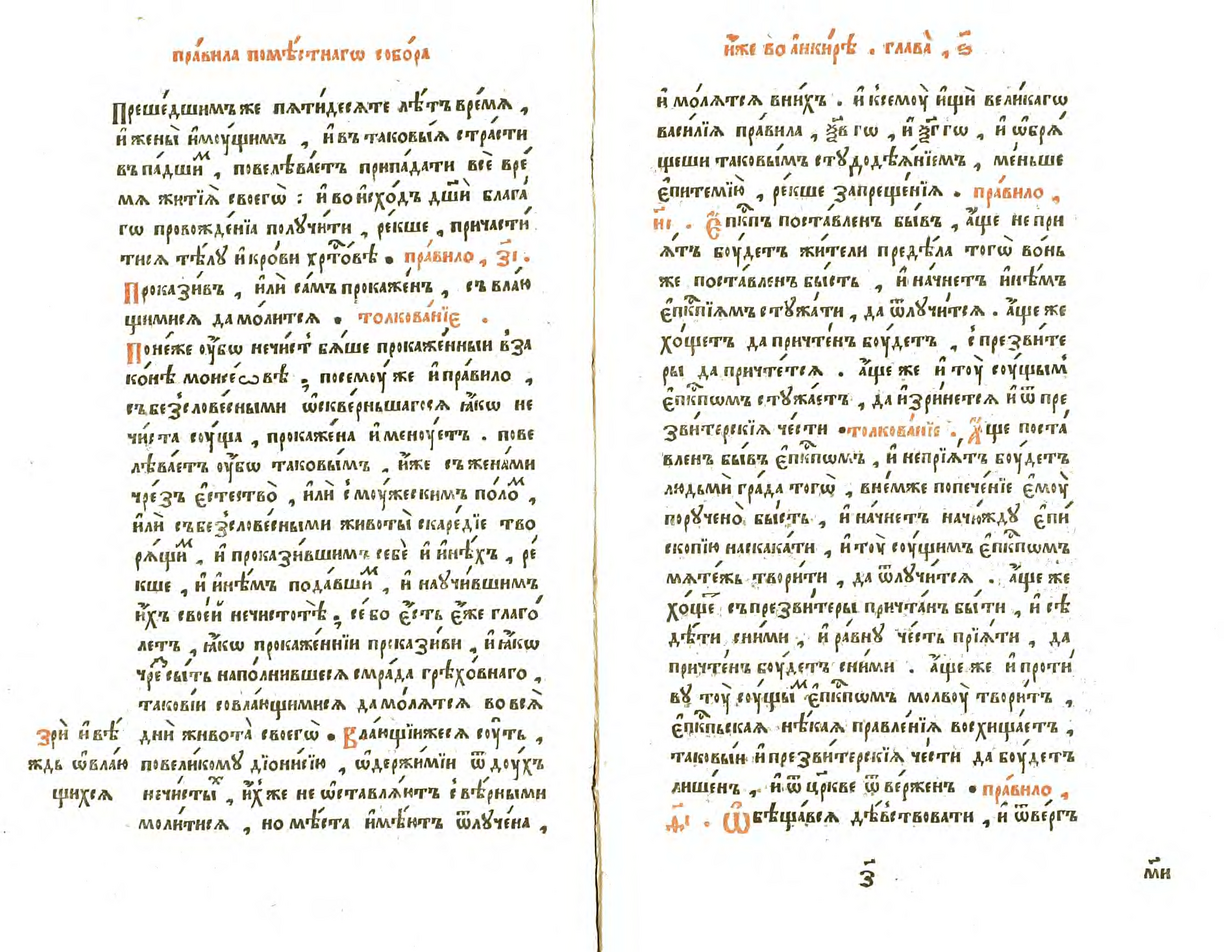 пра́вила помѣ́стнагѡ собо́ра
Преше́дшимъ же пѧтидесѧте лѣ́тъ вре́мѧ ,
и҆ жены̀ и҆мꙋ́щимъ , и҆ въ таковы́ѧ стра́сти
въпа́дшиⷨ , повелѣва́етъ припа́дати всѐ вре́
мѧ житїѧ̀ своегѡ̀ : и҆ во и҆схо́дъ дш҃и блага́
гѡ провожде́нїа полꙋчи́ти , ре́кше , причасти́
тисѧ тѣ́лꙋ и҆ кро́ви хрⷭ҇то́вѣ . пра́вило , з҃і .
Прокази́въ , и҆лѝ са́мъ прокаже́нъ , съ влаю́
щимисѧ да мо́литсѧ . толкова́нїе .
Поне́же ᲂу҆́бѡ нечи́стъ бѧ́ше прокаже́нныи в за
ко́нѣ моисео́вѣ , посемꙋ́ же и҆ пра́вило ,
съ безслове́сными ѡ҆скве́рньшагосѧ ꙗ҆́кѡ не
чи́ста сꙋ́ща , прокаже́на и҆менꙋ́етъ . пове
лѣва́етъ ᲂу҆́бѡ таковы́мъ , и҆́же съ жена́ми
чре́зъ є҆стество̀ , и҆лѝ с мꙋ́жескимъ по́лоⷨ ,
и҆лѝ съ безслове́сными живо́ты скаре́дїе тво
рѧ́щиⷨ , и҆ прокази́вшимъ себѐ и҆ и҆нѣ́хъ , ре́
кше , и҆ и҆нѣ́мъ пода́вшиⷨ , и҆ наꙋчи́вшимъ
и҆́хъ свое́й нечистотѣ̀ . се́ бо є҆́сть є҆́же глаго́
летъ , ꙗ҆́кѡ прокаже́ннїи прокази́ви , и҆ ꙗ҆́кѡ
чре́съ сыть напо́лнившесѧ смра́да грѣхо́внаго ,
такові́и со влаю́щимисѧ да мо́лѧтсѧ во всѧ̀
дни̑ живота̀ своегѡ̀ . Влаю́щїижесѧ сꙋ́ть ,
повели́комꙋ дїони́сїю , ѡ҆держи́мїи ѿ дꙋ́хъ
нечи́стыⷯ , и҆́хже не ѡ҆ставлѧ́ютъ с вѣ́рными
моли́тисѧ , но мѣ́ста и҆мѣ́ютъ ѿлꙋче́на ,
зрѝ и҆ вѣ́
ждь ѡ҆ влаю́
щихсѧ
и҆́же во а҆нки́рѣ . глава̀ , ѕ҃
и҆ мо́лѧтсѧ в ни́хъ . и҆ к семꙋ̀ и҆щѝ вели́кагѡ
васи́лїѧ пра́вила , ѯ҃в гѡ , и҆ ѯ҃г гѡ , и҆ ѡ҆брѧ́
щеши таковы́мъ стꙋдодѣѧ́нїемъ , ме́ньше
є҆питемі́ю , ре́кше запреще́нїѧ . пра́вило ,
и҃і . Е҆пⷭ҇кпъ поста́вленъ бы́въ , а҆́ще не при
ѧ́тъ бꙋ́детъ жи́тели предѣ́ла тогѡ̀ во́нь
же поста́вленъ бы́сть , и҆ начне́тъ и҆нѣ́мъ
є҆пⷭ҇кпїѧмъ стꙋжа́ти , да ѿлꙋчи́тсѧ . а҆́ще же
хо́щетъ да причте́нъ бꙋ́детъ , с презви́те
ры да причте́тсѧ . а҆́ще же и҆ тꙋ̀ сꙋ́щым
є҆пⷭ҇кпѡмъ стꙋжа́етъ , да и҆зри́нетсѧ и҆ ѿ пре
зви́терскїѧ че́сти . толкова́нїе . А҆́ще поста́
вленъ бы́въ є҆пⷭ҇кпомъ , и҆ непрїѧ́тъ бꙋ́детъ
людьмѝ гра́да тогѡ̀ , в не́мже попече́нїе є҆мꙋ̀
порꙋчено̀ бы́сть , и҆ начне́тъ на чю́ждꙋ є҆пи
ско́пїю наскака́ти , и҆ тꙋ̀ сꙋ́щимъ є҆пⷭ҇кпѡмъ
мѧте́жь твори́ти , да ѿлꙋчи́тсѧ . а҆́ще же
хо́щеⷮ съ презви́теры причта́нъ бы́ти , и҆ сѣ
дѣ́ти с ни́ми , и҆ ра́внꙋ че́сть прїѧ́ти , да
причте́нъ бꙋ́детъ с ни́ми . а҆́ще же и҆ проти́
вꙋ тꙋ̀ сꙋ́щыⷨ є҆пⷭ҇кпѡмъ молвꙋ̀ твори́тъ ,
є҆пⷭ҇кпьская нѣ́кая правле́нїѧ восхища́етъ ,
таковы́и и҆ презви́терскїѧ че́сти да бꙋ́детъ
лише́нъ , и҆ ѿ цр҃кве ѿве́рженъ . пра́вило ,
ѳ҃і . Ѡ҆бѣща́всѧ дѣ́вствовати , и҆ ѿве́ргъ
з҃
м҃и